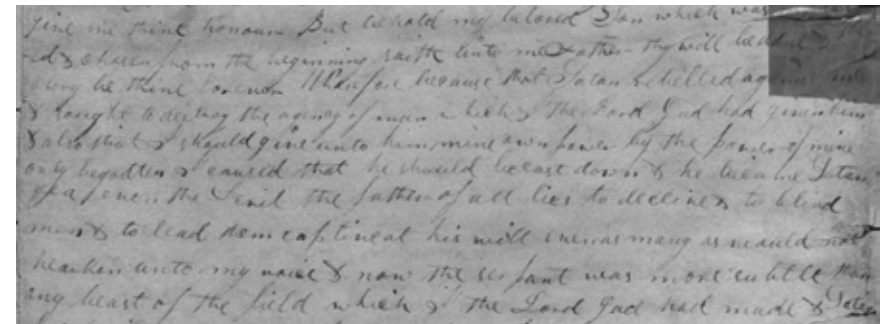 give me thine honour But behold my beloved Son which was
ed & chosen from the beginning saith unto me Father thy will be done
glory be thine forever Wherefore because that Satan rebelled against me
& sought to destroy the agency of man which I the Lord God had given him
& also that I should give unto him mine own power by the power of mine
only begotten I caused that he should be cast down & he became Satan
yea even the Devil the father of all lies to decieve & to blind
men & to lead them captive at his will even as many as would not
hearken unto my voice & now the serpant was more subtle than
any beast of the field which I the Lord God had made & Satan